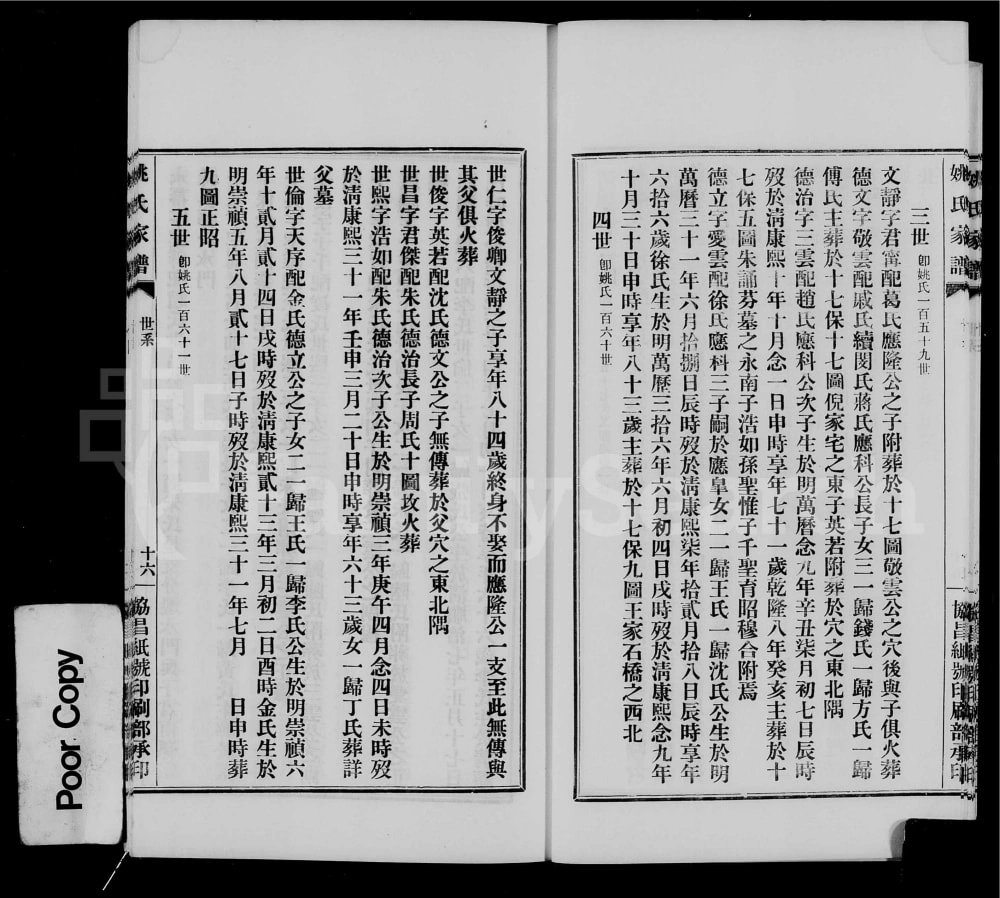 姚氏家譜
協昌紙號印刷部承印
三世 卽姚氏一百五十九世
文靜字君甯配葛氏應隆公之子附葬於十七圖敬雲公之穴後與子俱火葬
德文字敬雲配戚氏續閔氏蔣氏應科公長子女三一歸錢氏一歸方氏一歸
傅氏主葬於十七保十七圖倪家宅之東子英若附葬於穴之東北隅
德治字三雲配趙氏應科公次子生於明萬曆念九年辛丑柒月初七日辰時
歿於清康熙十年十月念一日申時享年七十一歲乾隆八年癸亥主葬於十
七保五圖朱誦芬墓之永南子浩如孫聖惟子千聖育昭穆合附焉
德立字愛雲配徐氏應科三子嗣於應皐女二一歸王氏一歸沈氏公生於明
萬曆三十一年六月拾捌日辰時歿於清康熙柒年拾貳月拾八日辰時享年
六拾六歲徐氏生於明萬歷三拾六年六月初四日戌時歿於清康熙念九年
十月三十日申時享年八十三歲主葬於十七保九圖王家石橋之西北
四世 卽姚氏一百六十世
世仁字俊卿文靜之子享年八十四歲終身不娶而應隆公一支至此無傳與
其父俱火葬
世俊字英若配沈氏德文公之子無傳葬於父穴之東北隅
世昌字君傑配朱氏德治長子周氏十圖攻火葬
世熙字浩如配朱氏德治次子公生於明崇禎三年庚午四月念四日未時歿
於清康熙三十一年壬申三月二十日申時享年六十三歲女一歸丁氏葬詳
父墓
世倫字天序配金氏德立公之子女二一歸王氏一歸李氏公生於明崇禎六
年十貳月貳十四日戌時歿於清康熙貳十三年三月初二日酉時金氏生於
明崇禎五年八月貳十七日子時歿於清康熙三十一年七月　日申時葬
九圖正昭
五世 卽姚氏一百六十一世
姚氏家譜
世系
十六
協昌紙號印刷部承印
Poor Copy
FamilySearch